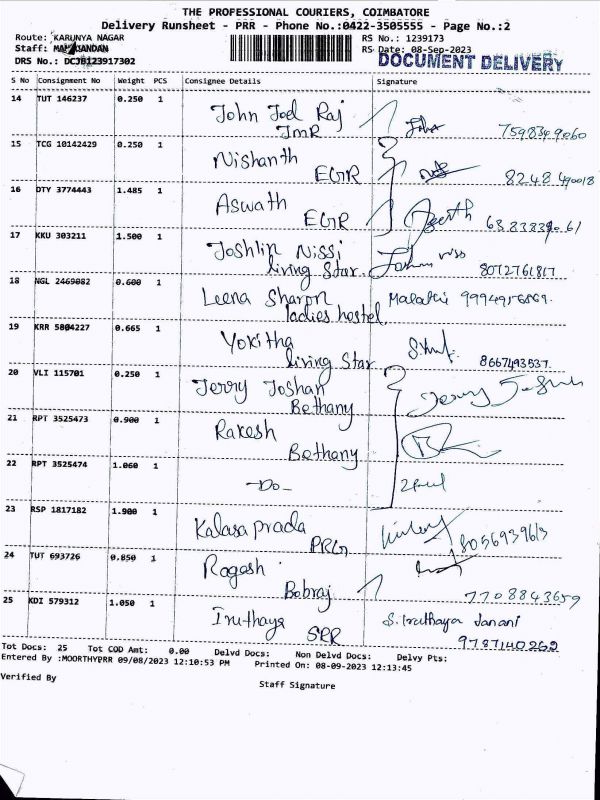 THE PROFESSIONAL COURIERS, COIMBATORE
Delivery Runsheet - PRR - Phone No.:0422-3505555 - Page No.:2
Route: KARUNYA NAGAR
RS No.: 1239173
Staff:
RS Date: 08-Sep-2023
DRS No.: DCJB123917302
DOCUMENT DELIVERY
S No Consignment No Weight PCS Consignee Details Signature
14 TUT 146237 0.250 1 John Joel Raj
JMR
15 TCG 10142429 0.250 1 Nishanth
EGR 8248490018
16 DTY 3774443 1.485 1 Aswath
EGR
17 KKU 303211 1.500 1 Joshlin Nissi
living Star 8072761817
18 NGL 2469082 0.600 1 Leena Sharon
ladies hostel
19 KRR 5804227 0.665 1 Yokitha
living Star 8667493537
20 VLI 115701 0.250 1 Jerry Joshan
Bethany
21 RPT 3525473 0.900 1 Rakesh
Bethany
22 RPT 3525474 1.060 1 -Do-
23 RSP 1817182 1.900 1 Kalasa prada
PRG 8056939613
24 TUT 693726 0.850 1 Ragash
Bobraj 7708843659
25 KDI 579312 1.050 1 Iruthaya S. Iruthaya Janani
SPR 9787140262
Tot Docs: 25 Tot COD Amt: 0.00 Delvd Docs: Non Delvd Docs: Delvy Pts:
Entered By :MOORTHYPRR 09/08/2023 12:10:53 PM Printed On: 08-09-2023 12:13:45
Verified By
Staff Signature